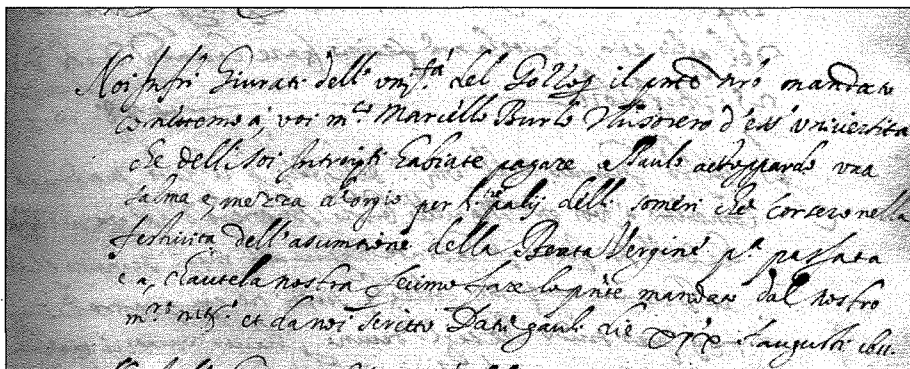 Noi Infri Giurati dell' un.tà del Gozzo il pnte nro mandato
comittemo à, voi m.co Mariello Burlo Thesorero d'ess' universita
che delli Noi Introyti habiate pagare a Paulo una
salma e, mezza d'orgio per li palij delli someri che corsero nella
festivita dell'asumtione della Beata Vergine pa passata
e a, Clautela nostra fecimo fare lo pnte mandato dal nostro
m.ro et da noi scritto Dat: gauli die xix Augusti 1611.